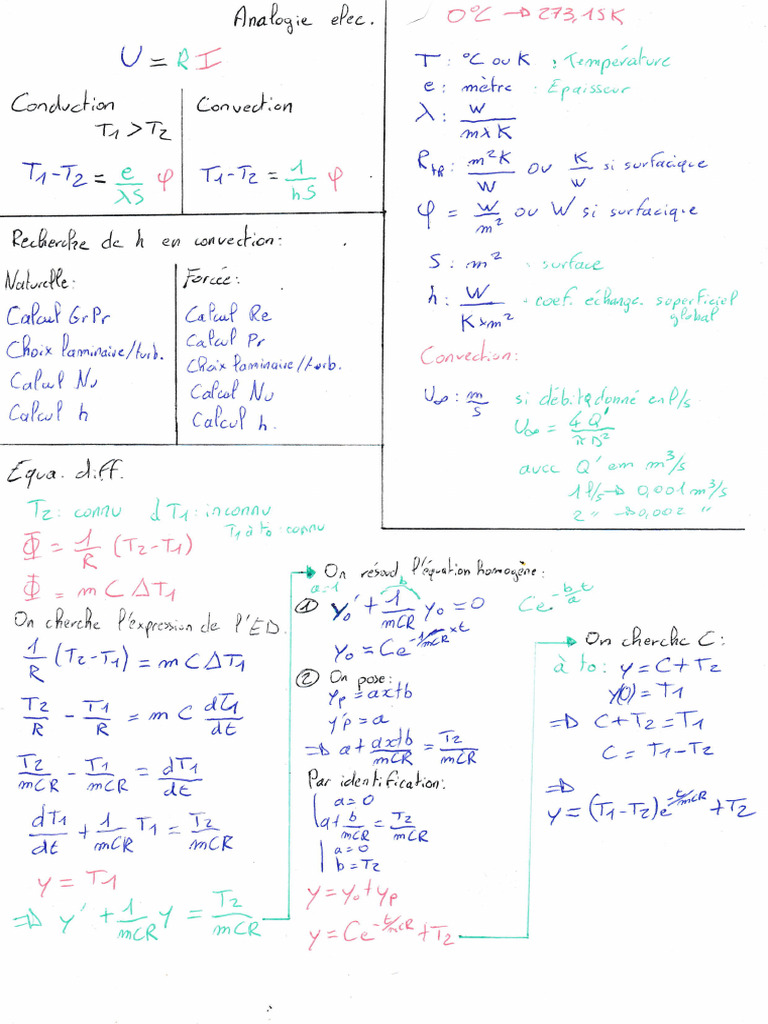 Analogie elec.
U = R I
Conduction
T1 > T2
T1-T2 = e/λS φ
Convection
T1-T2 = 1/hS φ
Recherche de h en convection:
Naturelle:
Calcul GrPr
Choix laminaire/turb.
Calcul Nu
Calcul h
Forcée:
Calcul Re
Calcul Pr
Choix laminaire/turb.
Calcul Nu
Calcul h.
0°C → 273,15K
T: °C ou K : Température
e: mètre : Epaisseur
λ: W/mxK
Rth: m²K/W ou K/W si surfacique
φ = W/m² ou W si surfacique
S: m² : surface
h: W/Kxm² : coef. échange superficiel
global
Convection:
U∞: m/s si débit Q donné en l/s
U∞ = 4Q'/πD²
avec Q' em m³/s
1 l/s → 0,001 m³/s
2 " → 0,002 "
Equa. diff.
T2: connu dT1: inconnu
T1 à to: connu
Φ = 1/R (T2-T1)
Φ = m C ΔT1
On cherche l'expression de l'ED.
1/R (T2-T1) = m C ΔT1
T2/R - T1/R = m C dT1/dt
T2/mCR - T1/mCR = dT1/dt
dT1/dt + 1/mCR T1 = T2/mCR
y = T1
⇒ y' + 1/mCR y = T2/mCR
On résoud l'équation homogène:
a=1 b
① yo' + 1/mCR yo = 0 Ce^-b/a t
yo = Ce^-1/mCR xt
② On pose:
yp = ax+b
y'p = a
⇒ a + ax+b/mCR = T2/mCR
Par identification:
a=0
a + b/mCR = T2/mCR
a=0
b=T2
y = yo + yp
y = Ce^-t/mCR + T2
On cherche C:
à to: y = C+T2
y(0) = T1
⇒ C+T2 = T1
C = T1-T2
⇒
y = (T1-T2)e^-t/mCR + T2